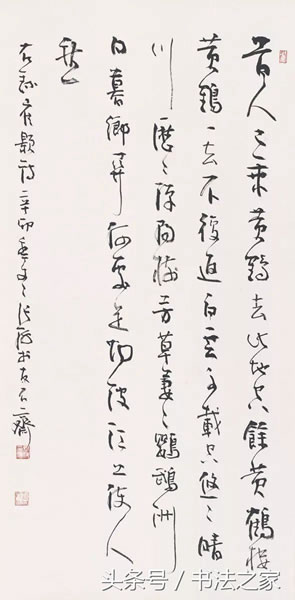 昔人已乘黄鶴去此地空餘黄鶴樓
黄鶴一去不復返白雲千載空悠々晴
川歷々漢陽樹芳草萋々鸚鵡洲
日暮鄉關何處是烟波江上使人
愁
右录崔顥詩辛卯
齋
头条号 / 书法之家